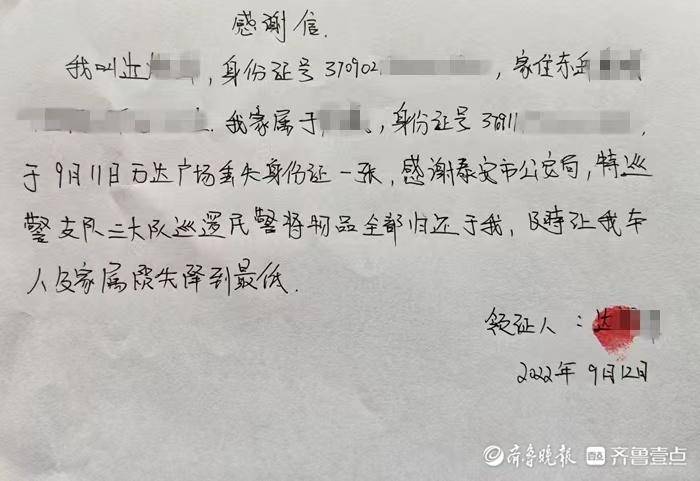 感谢信.
我叫达 , 身份证号 370902 , 家住东岳
. 我家属于 , 身份证号 37911 ,
于9月11日万达广场丢失身份证一张, 感谢泰安市公安局, 特巡
警支队三大队巡逻民警将物品全部归还于我, 及时让我本
人及家属损失降到最低.
领证人 : 达
2022年 9月12日
齐鲁晚报 齐鲁壹点